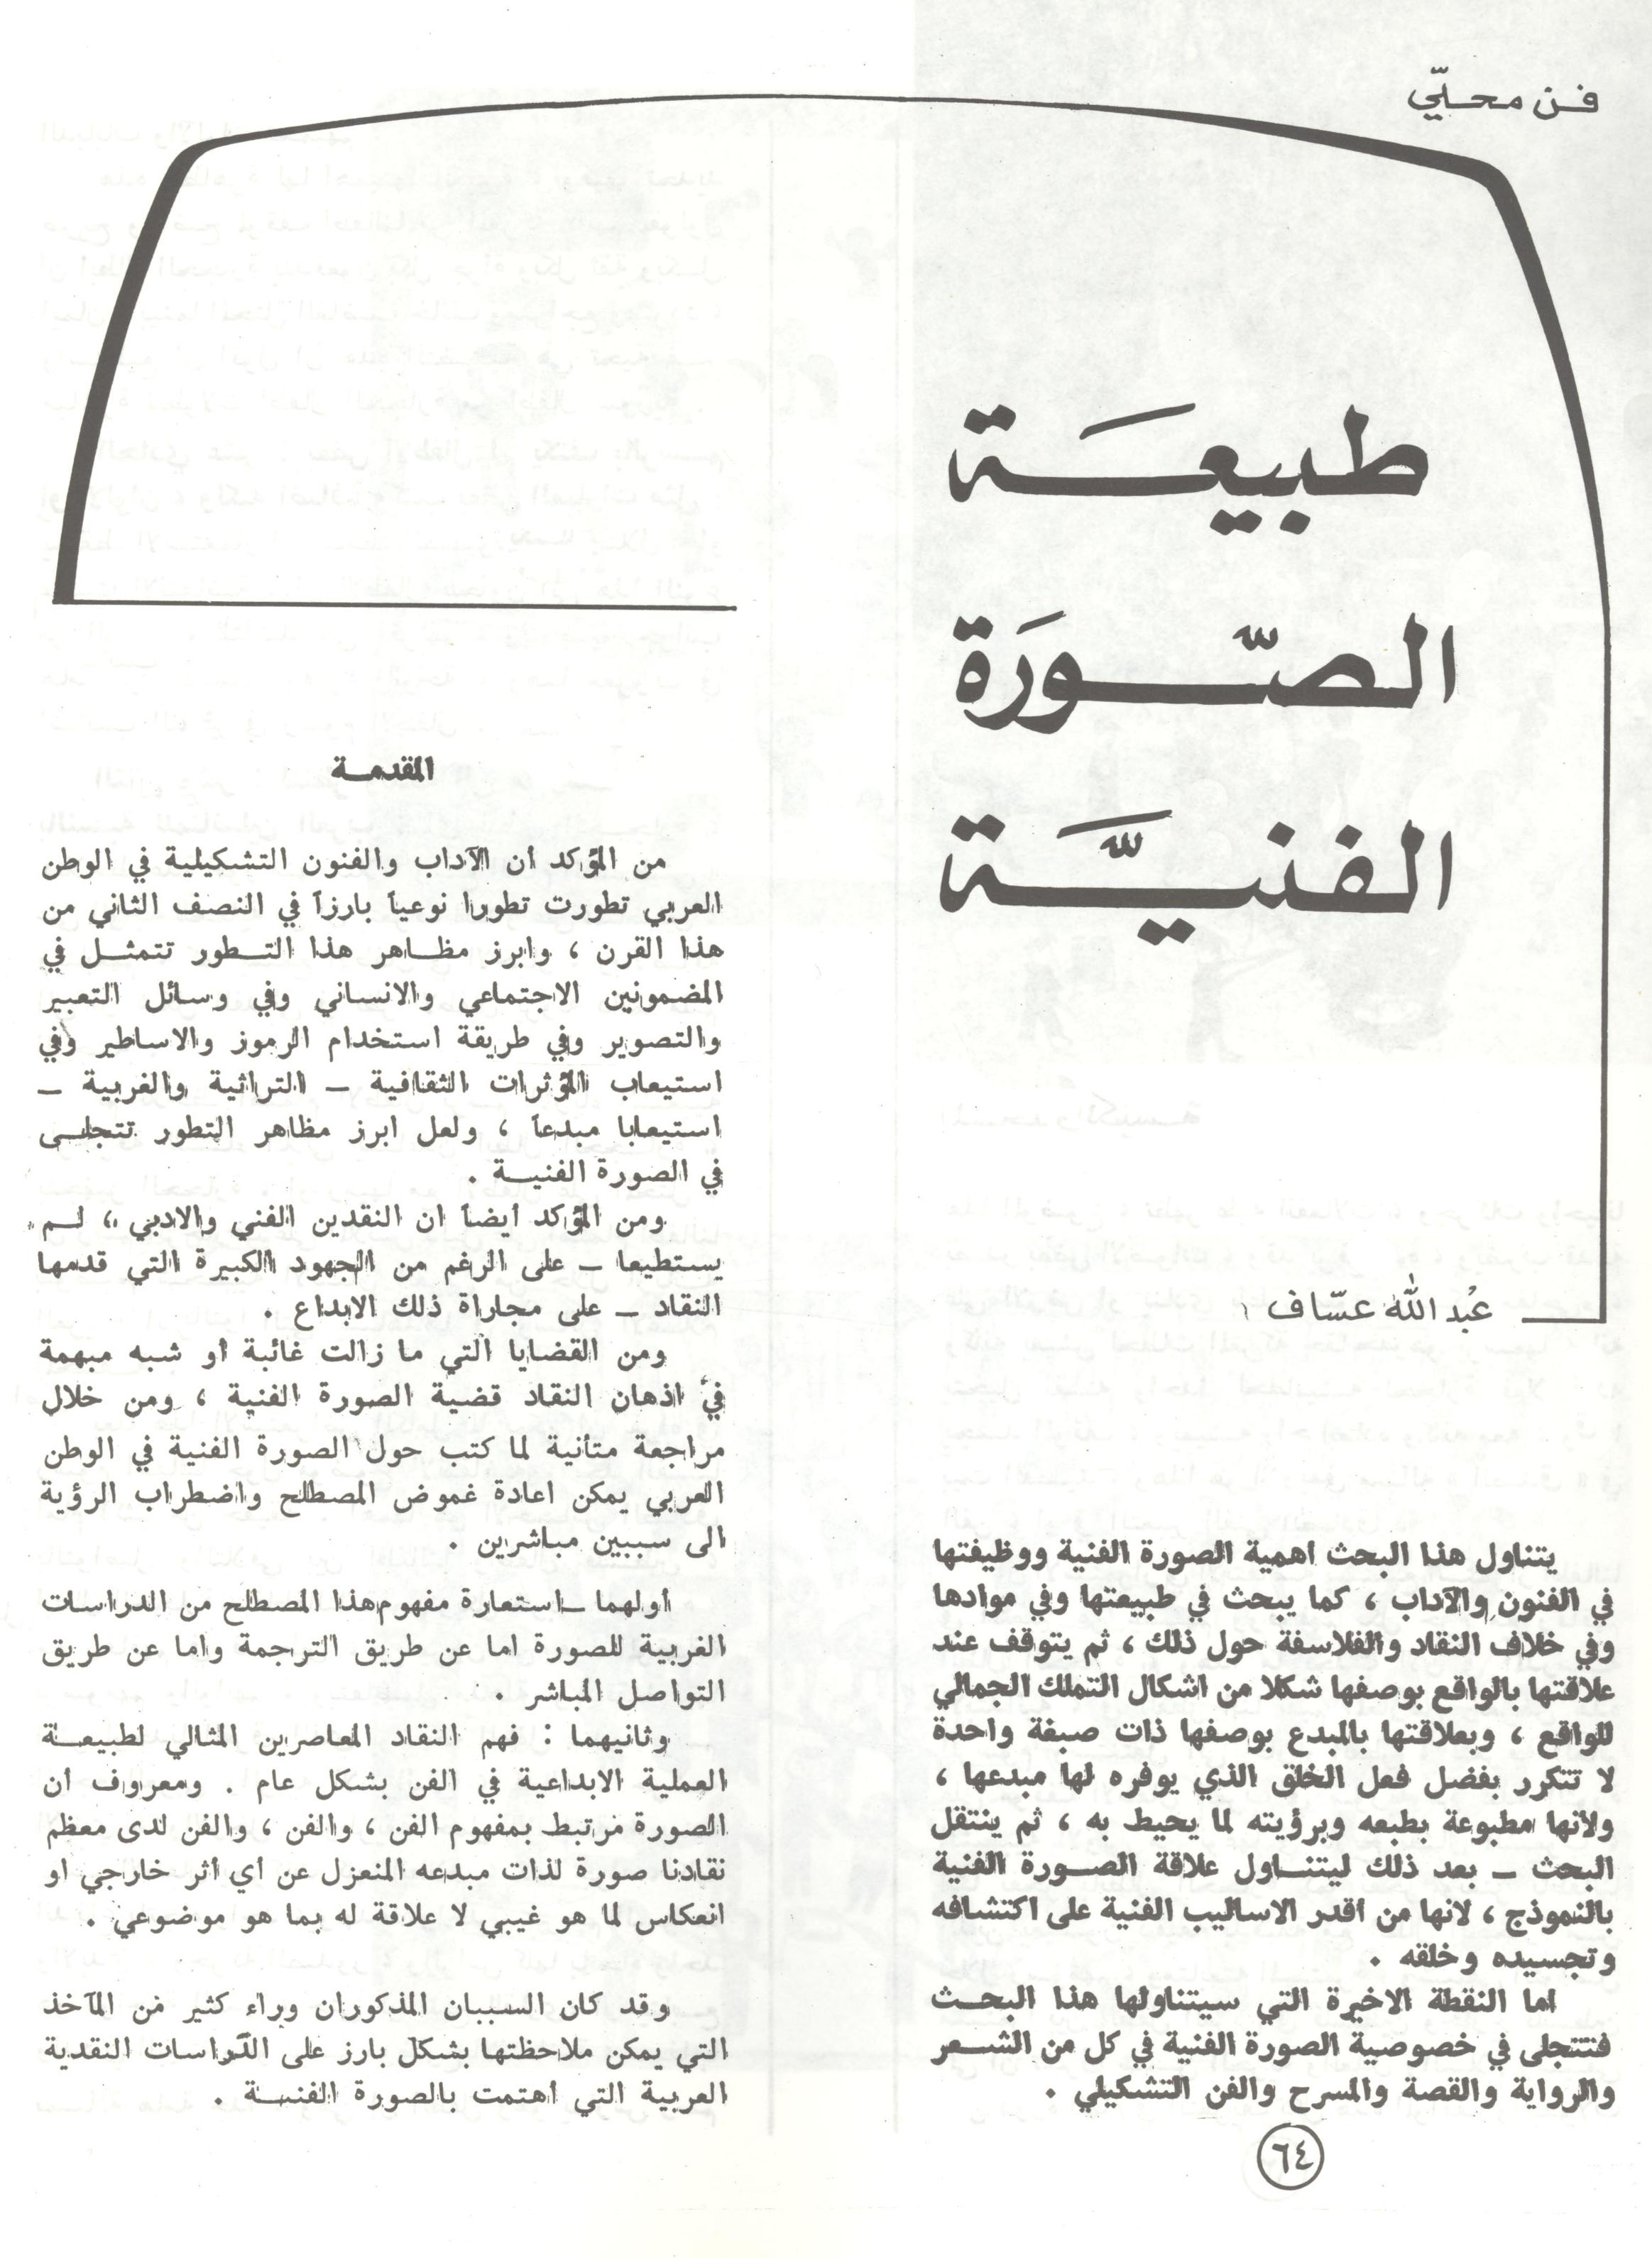 فن محلّي
طبيعَة
الصّورَة
الفنيَّة
عبد الله عسّاف
يتناول هذا البحث اهمية الصورة الفنية ووظيفتها
في الفنون والآداب ، كما يبحث في طبيعتها وفي موادها
وفي خلاف النقاد والفلاسفة حول ذلك ، ثم يتوقف عند
علاقتها بالواقع بوصفها شكلا من اشكال التملك الجمالي
للواقع ، وبعلاقتها بالمبدع بوصفها ذات صبغة واحدة
لا تتكرر بفضل فعل الخلق الذي يوفره لها مبدعها ،
ولانها مطبوعة بطبعه وبرؤيته لما يحيط به ، ثم ينتقل
البحث – بعد ذلك ليتنـاول علاقة الصـورة الفنية
بالنموذج ، لانها من اقدر الاساليب الفنية على اكتشافه
وتجسيده وخلقه .
اما النقطة الاخيرة التي سيتناولها هذا البحث
فتتجلى في خصوصية الصورة الفنية في كل من الشعر
والرواية والقصة والمسرح والفن التشكيلي .
المقدمـة
من المؤكد أن الآداب والفنون التشكيلية في الوطن
العربي تطورت تطورا نوعياً بارزاً في النصف الثاني من
هذا القرن ، وابرز مظـاهر هذا التـطور تتمثـل في
المضمونين الاجتماعي والانساني وفي وسائل التعبير
والتصوير وفي طريقة استخدام الرموز والاساطير وفي
استيعاب المؤثرات الثقافية – التراثية والغربية –
استيعابا مبدعاً ، ولعل ابرز مظاهر التطور تتجلـى
في الصورة الفنيـة .
ومن المؤكد أيضاً ان النقدين الفني والادبي ، لـم
يستطيعا – على الرغم من الجهود الكبيرة التي قدمها
النقاد – على مجاراة ذلك الابداع .
ومن القضايا التي ما زالت غائبة أو شبه مبهمة
في اذهان النقاد قضية الصورة الفنية ، ومن خلال
مراجعة متأنية لما كتب حول الصورة الفنية في الوطن
العربي يمكن اعادة غموض المصطلح واضطراب الرؤية
الى سببين مباشرين .
أولهما – استعارة مفهوم هذا المصطلح من الدراسات
الغربية للصورة اما عن طريق الترجمة واما عن طريق
التواصل المباشر .
وثانيهما : فهم النقاد المعاصرين المثالي لطبيعـة
العملية الابداعية في الفن بشكل عام . ومعروف أن
الصورة مرتبط بمفهوم الفن ، والفن ، والفن لدى معظم
نقادنا صورة لذات مبدعه المنعزل عن أي أثر خارجي او
انعكاس لما هو غيبي لا علاقة له بما هو موضوعي .
وقد كان السببان المذكوران وراء كثير من المآخذ
التي يمكن ملاحظتها بشكل بارز على الدراسات النقدية
العربية التي أهتمت بالصورة الفنيـة .
٦٤